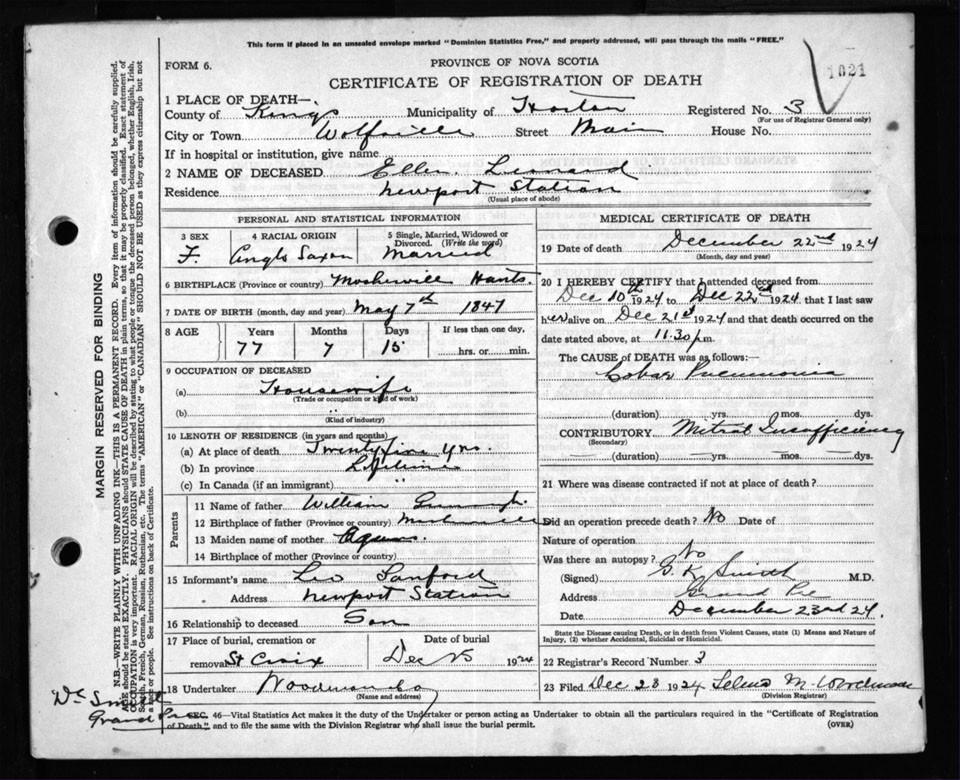 This form if placed in an unsealed envelope marked "Dominion Statistics Free," and properly addressed, will pass through the mails "FREE."
FORM 6.
PROVINCE OF NOVA SCOTIA
1621
CERTIFICATE OF REGISTRATION OF DEATH
1 PLACE OF DEATH—
County of Kings Municipality of Horton Registered No. 3
(For use of Registrar General only)
City or Town Wolfville Street Main House No.
If in hospital or institution, give name
2 NAME OF DECEASED Ellen Leonard
Residence Newport Station
(Usual place of abode)
PERSONAL AND STATISTICAL INFORMATION
3 SEX 4 RACIAL ORIGIN 5 Single, Married, Widowed or Divorced. (Write the word)
F. Anglo Saxon Married
6 BIRTHPLACE (Province or country) Mosherville Hants.
7 DATE OF BIRTH (month, day and year) May 7th 1847
8 AGE Years Months Days If less than one day,
77 7 15 hrs. or min.
9 OCCUPATION OF DECEASED
(a) Housewife
(Trade or occupation or kind of work)
(b) "
(Kind of industry)
10 LENGTH OF RESIDENCE (in years and months)
(a) At place of death Twenty five yrs.
(b) In province Lifetime
(c) In Canada (if an immigrant) "
Parents
11 Name of father William
12 Birthplace of father (Province or country) Mosherville
13 Maiden name of mother
14 Birthplace of mother (Province or country)
15 Informant's name Leo Sanford
Address Newport Station
16 Relationship to deceased Son
17 Place of burial, cremation or removal St Croix
Date of burial
Dec 25 1924
18 Undertaker Woodman & Co
(Name and address)
MEDICAL CERTIFICATE OF DEATH
19 Date of death December 22nd 1924
(Month, day and year)
20 I HEREBY CERTIFY that I attended deceased from
Dec 10th 1924 to Dec 22nd 1924, that I last saw
her alive on Dec 21st 1924 and that death occurred on the
date stated above, at 11.30 p.m.
The CAUSE of DEATH was as follows:—
Lobar Pneumonia
(duration) yrs. mos. dys.
CONTRIBUTORY Mitral Insufficiency
(Secondary)
(duration) yrs. mos. dys.
21 Where was disease contracted if not at place of death?
Did an operation precede death? No Date of
Nature of operation
Was there an autopsy? No
(Signed) G. K. Smith M.D.
Address Grand Pre
Date December 23rd 24.
State the Disease causing Death, or in death from Violent Causes, state (1) Means and Nature of
Injury, (2) whether Accidental, Suicidal or Homicidal.
22 Registrar's Record Number 3
23 Filed Dec 23 1924 M. Woodman
Division Registrar
SEC. 46—Vital Statistics Act makes it the duty of the Undertaker or person acting as Undertaker to obtain all the particulars required in the "Certificate of Registration
of Death," and to file the same with the Division Registrar who shall issue the burial permit. (OVER)
Dr Smith
Grand Pre
MARGIN RESERVED FOR BINDING
N.B.—WRITE PLAINLY WITH UNFADING INK—THIS IS A PERMANENT RECORD. Every item of information should be carefully supplied.
AGE should be stated EXACTLY. PHYSICIANS should STATE CAUSE OF DEATH in plain terms, so that it may be properly classified. Exact statement of
OCCUPATION is very important. RACIAL ORIGIN will be described by stating to what people or tongue the deceased person belonged, whether English, Irish,
Scotch, French, German, Russian, Ruthenian, etc. The terms "AMERICAN" or "CANADIAN" SHOULD NOT BE USED as they express citizenship but not
a race or people. See instructions on back of Certificate.